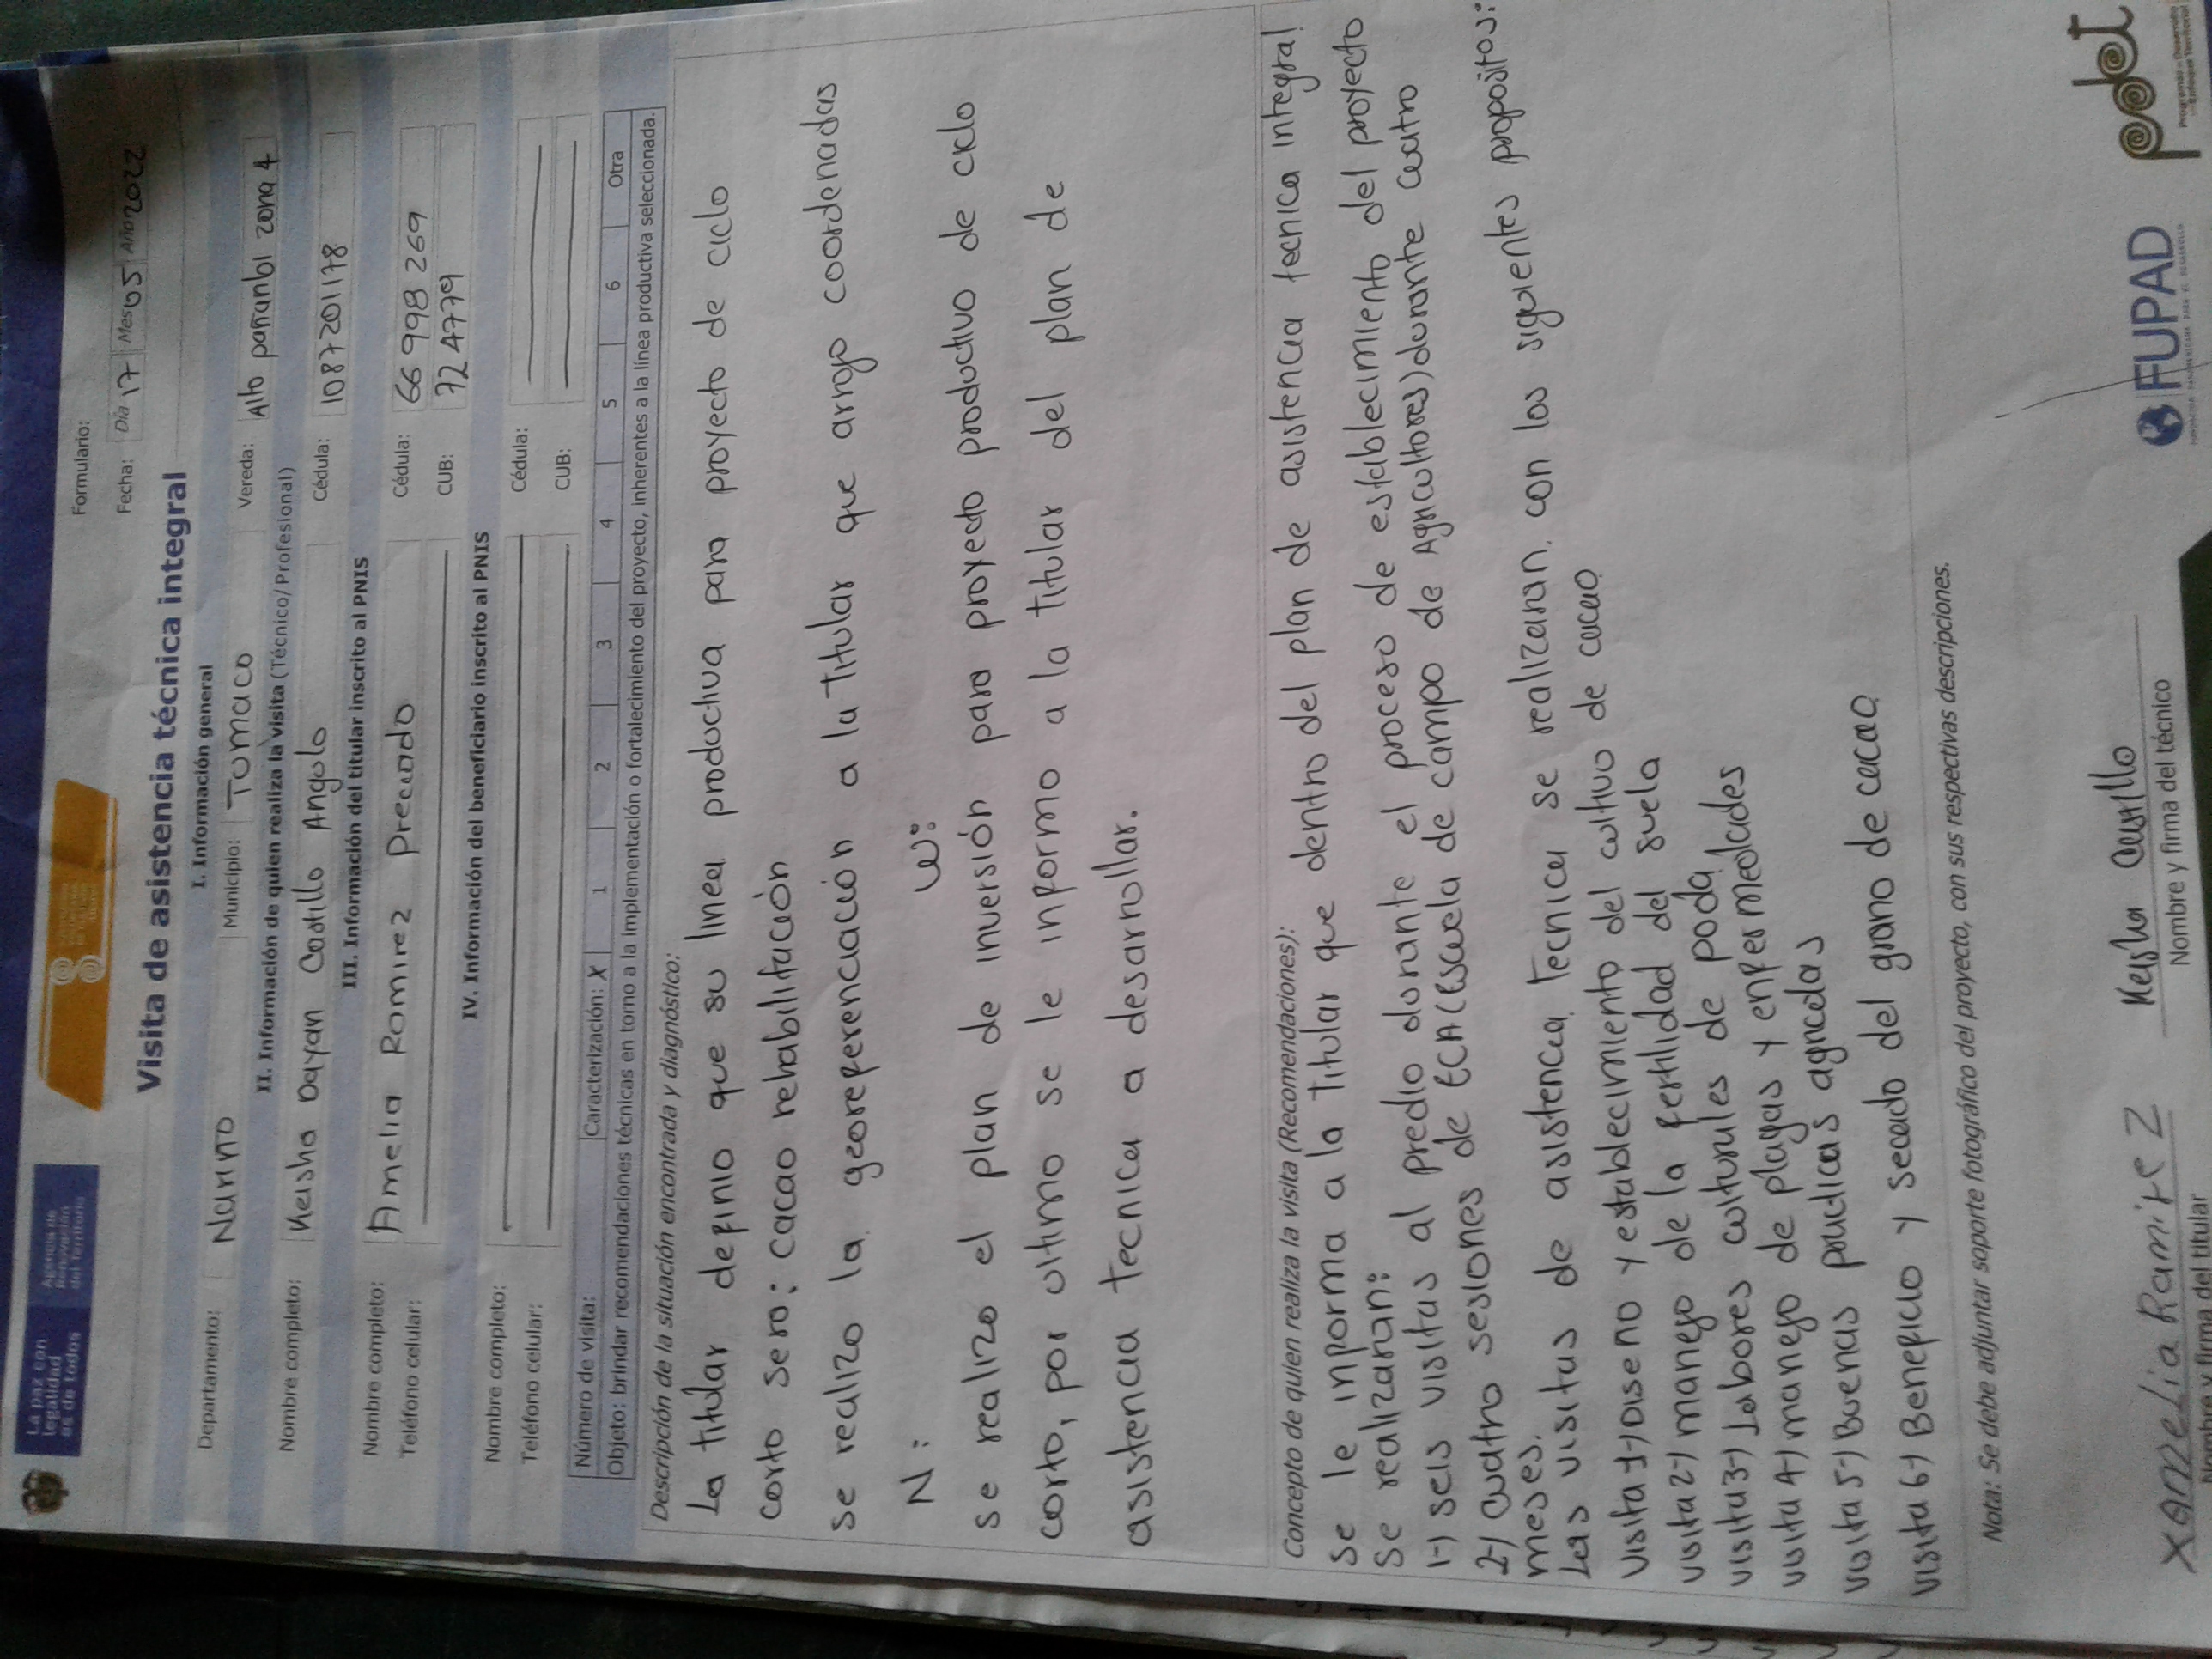 La paz con
legalidad
es de todos
Agencia de
Renovación
del Territorio
Formulario:
Fecha: Día 17 Mes 05 Año 2022
Visita de asistencia técnica integral
I. Información general
Departamento: Nariño Municipio: Tumaco Vereda: Alto pañanbi zona 4
II. Información de quien realiza la visita (Técnico/Profesional)
Nombre completo: Keisha Dayan Castillo Angulo Cédula: 1087201178
III. Información del titular inscrito al PNIS
Nombre completo: Amelia Romirez Preciado Cédula: 66 998 269
Teléfono celular: CUB: 724779
IV. Información del beneficiario inscrito al PNIS
Nombre completo: Cédula:
Teléfono celular: CUB:
Número de visita: Caracterización: X 1 2 3 4 5 6 Otra
Objeto: brindar recomendaciones técnicas en torno a la implementación o fortalecimiento del proyecto, inherentes a la línea productiva seleccionada.
Descripción de la situación encontrada y diagnóstico:
La titular definio que su linea productiva para proyecto de ciclo
corto sera: cacao rehabilitación
se realizo la georeferenciación a la titular que arrojo coordenadas
N: W:
se realizo el plan de inversión para proyecto productivo de ciclo
corto, por ultimo se le informo a la titular del plan de
asistencia tecnica a desarrollar.
Concepto de quien realiza la visita (Recomendaciones):
se le informa a la titular que dentro del plan de asistencia tecnica integral
se realizaran:
1-) seis visitas al predio durante el proceso de establecimiento del proyecto
2-) cuatro sesiones de ECA (escuela de campo de Agricultores) durante cuatro
meses.
Las visitas de asistencia tecnica se realizaran con los siguientes propositos:
visita 1-) Diseño y establecimiento del cultivo de cacao
visita 2-) manejo de la fertilidad del suelo
visita 3-) Labores culturales de poda
visita 4-) manejo de plagas y enfermedades
visita 5-) Buenas practicas agricolas
visita 6-) Beneficio y secado del grano de cacao
Nota: Se debe adjuntar soporte fotográfico del proyecto, con sus respectivas descripciones.
X amelia Ramirez
Nombre y firma del titular
Keisha Castillo
Nombre y firma del técnico
FUPAD
FUNDACIÓN PANAMERICANA PARA EL DESARROLLO
pdet
Programas de Desarrollo
con Enfoque Territorial